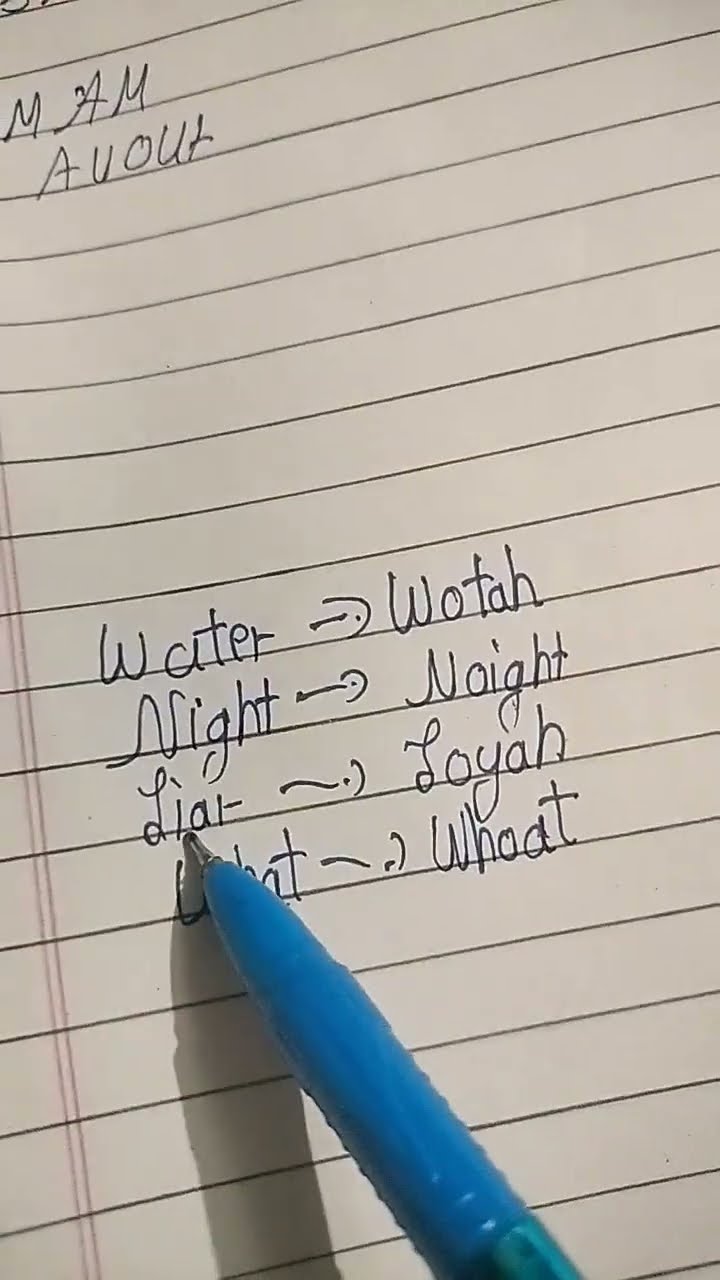 MAM
AVOUt
Water → Wotah
Night → Noight
Liar → Loyah
What → Whoat